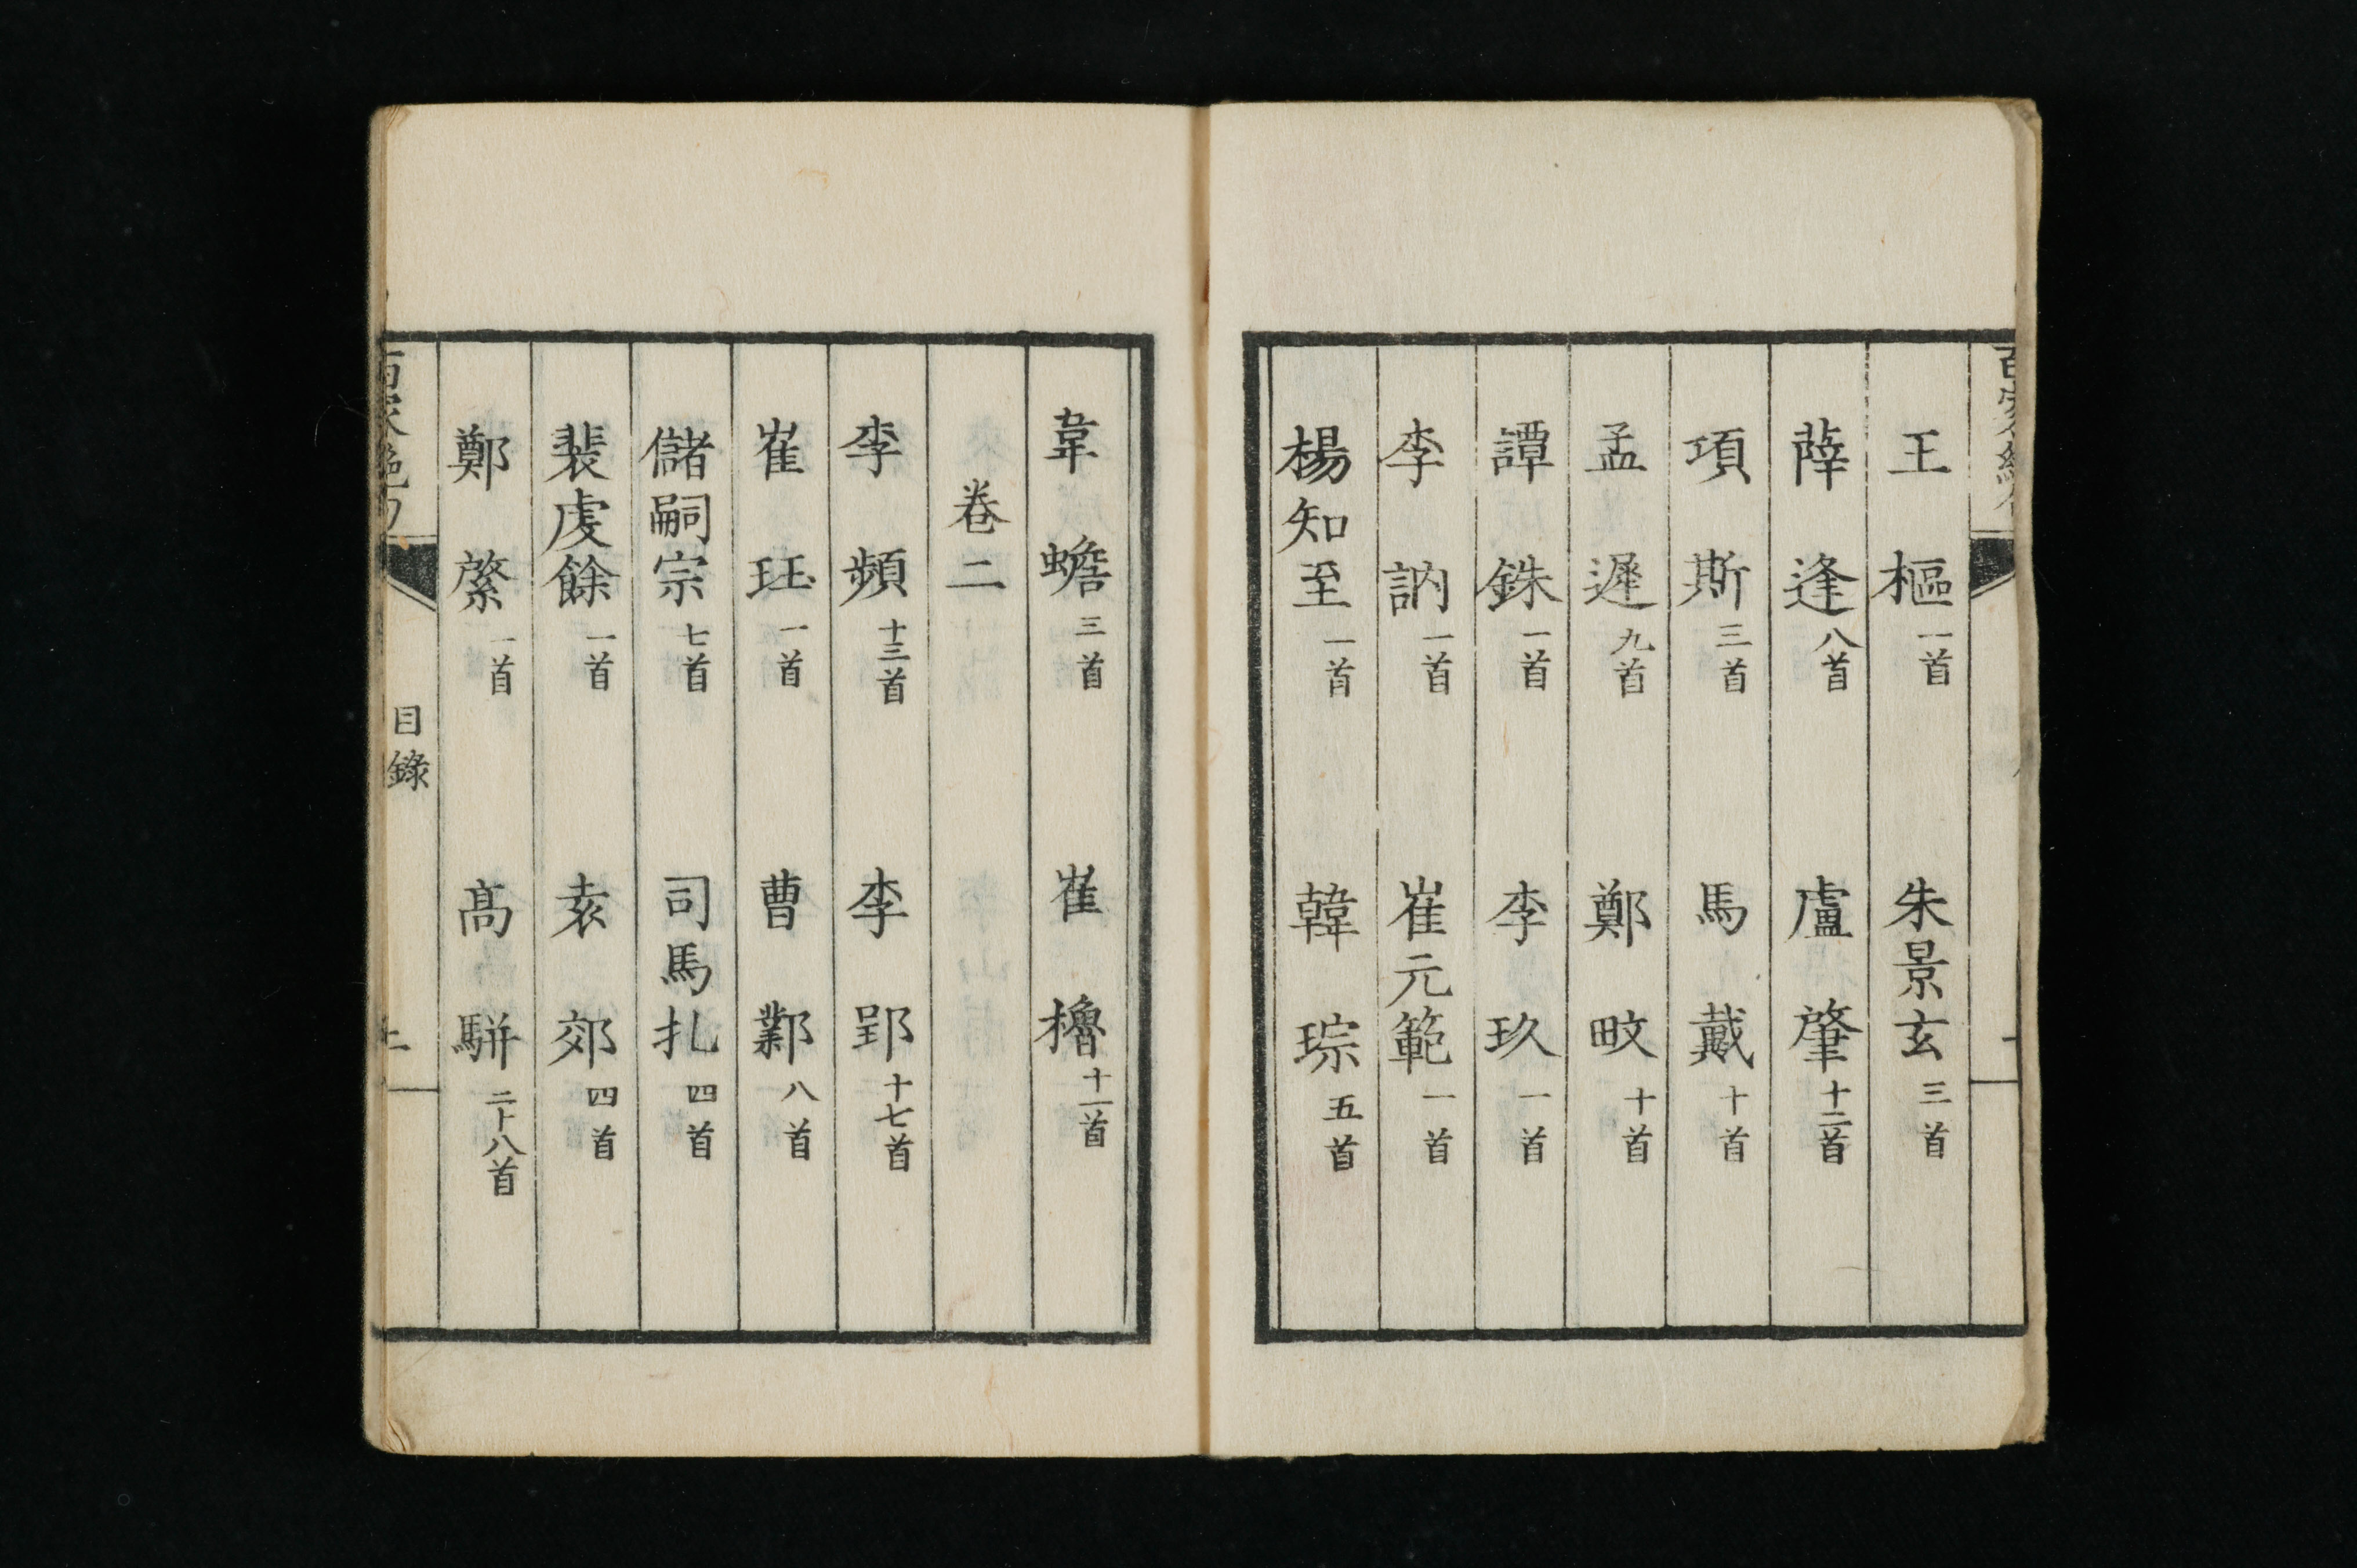 王樞一首 朱景玄三首
薛逢八首 盧肇十二首
項斯三首 馬戴十首
孟遲九首 鄭畋十首
譚銖一首 李玖一首
李訥一首 崔元範一首
楊知至一首 韓琮五首
韋蟾三首 崔櫓十一首
卷二
李頻十三首 李郢十七首
崔珏一首 曹鄴八首
儲嗣宗七首 司馬扎四首
裴虔餘一首 袁郊四首
鄭綮一首 高駢二十八首
目錄